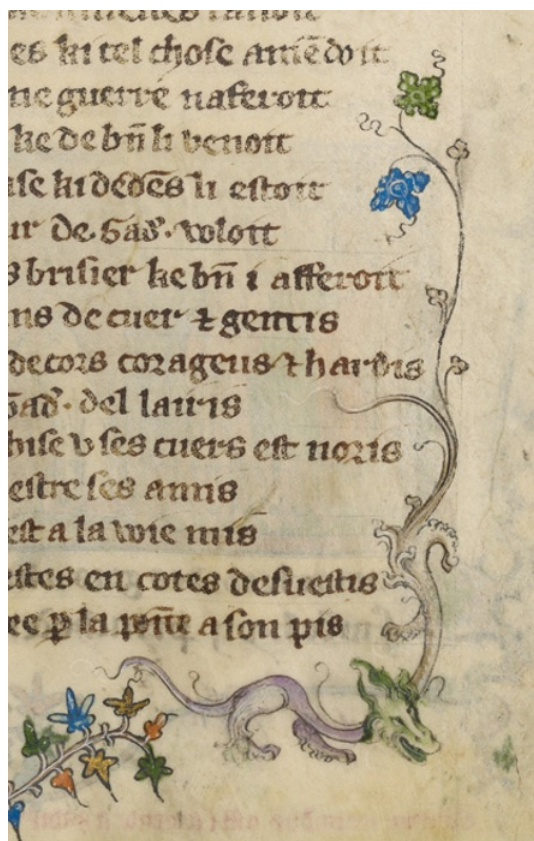 es ki tel chose amēdoit
ne guerre naferoit
ke de bn̄ li venoit
ise ki dedēs li estoit
ur de Gad᷒. voloit
s brisier ke bn̄ i afferoit
ns de cuer ⁊ gentis
de cors corageus ⁊ hardis
Gad᷒. del lauris
hise v ses cuers est noris
estre ses amis
est a la voie mis
stes en cotes desuestis
ee ꝑ la pōite a son pis